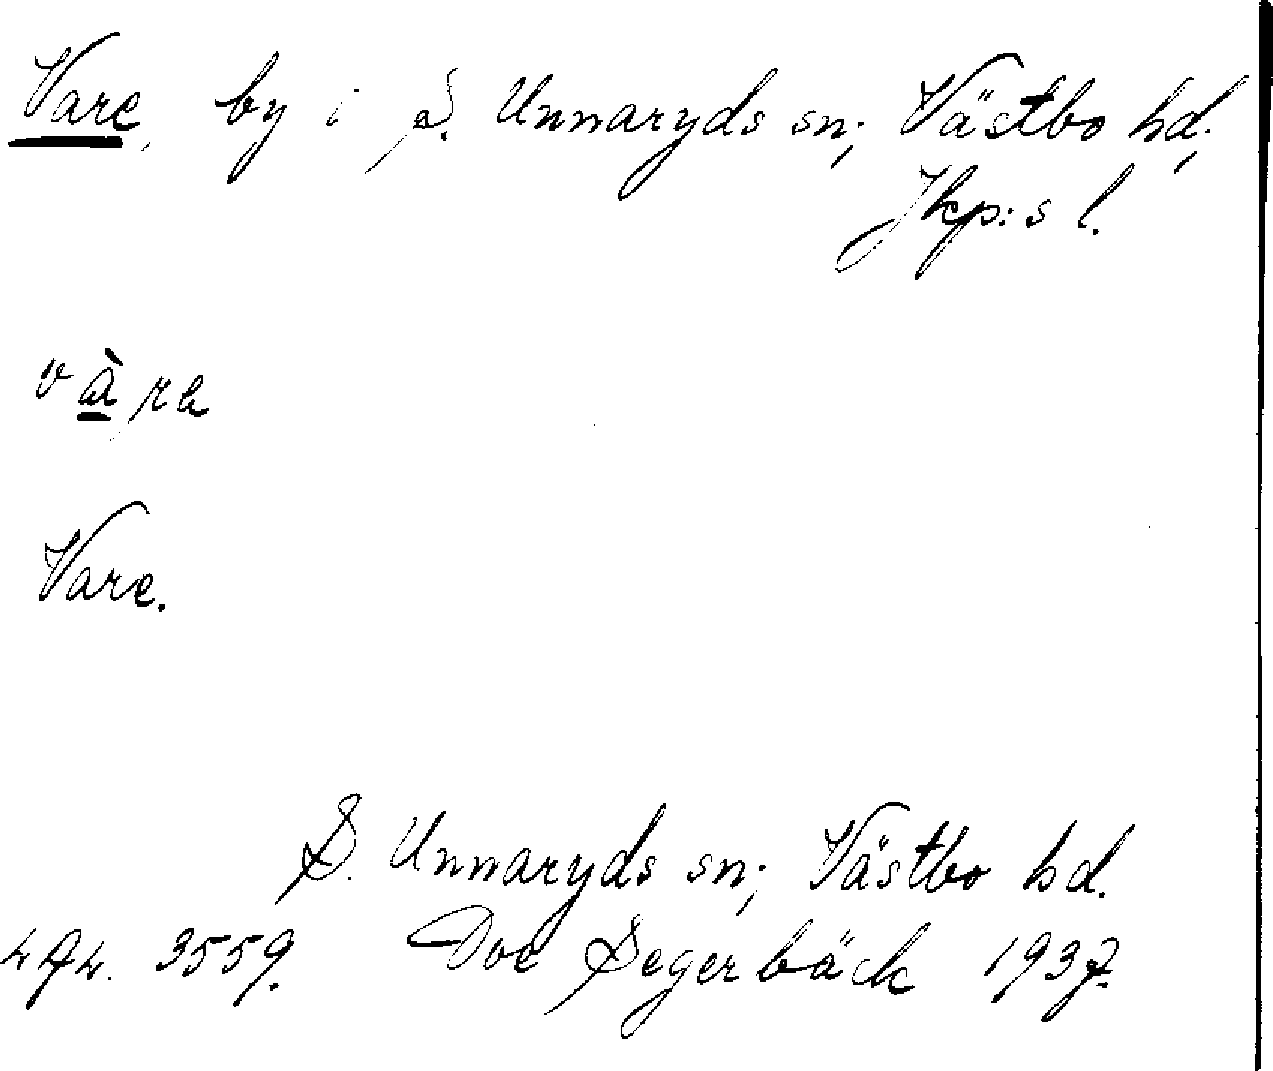 Vare, by i S. Unnaryds sn; Västbo hd;
Jkp:s l.
Vare.
S. Unnaryds sn; Västbo hd.
3559. Dve Segerbäck 1937.